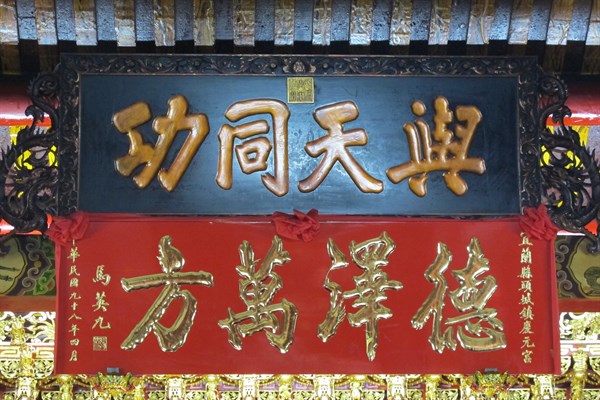 與天同功
宜蘭縣頭城鎮慶元宮
德澤萬方
馬英九
中華民國九十八年四月